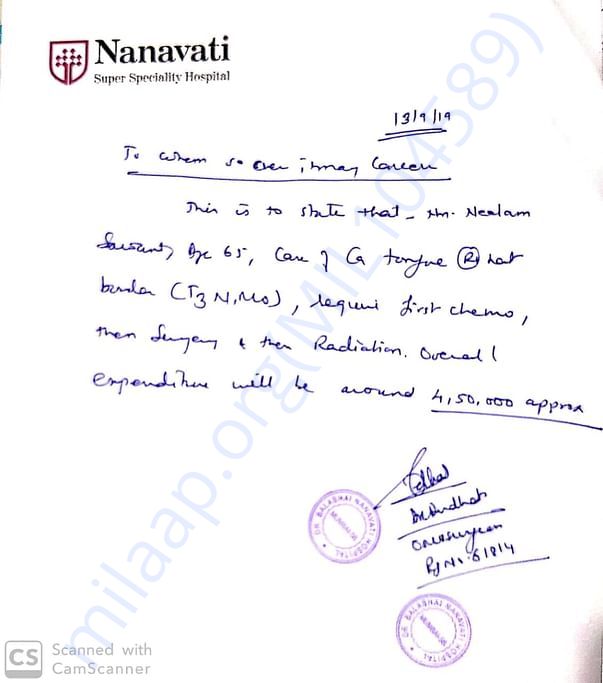 Nanavati
Super Speciality Hospital
13/9/19
To whom so ever it may Concern
This is to state that - Mr. Neelam
Age 65, Case of Ca tongue (R) lat
border (T3 N1 M0), require first chemo,
then Surgery & then Radiation. Overall
expenditure will be around 4,50,000 approx
Oncosurgeon
61814
DR. BALABHAI NANAVATI HOSPITAL
DR. BALABHAI NANAVATI HOSPITAL
milaap.org(MIL104589)
CS Scanned with
CamScanner